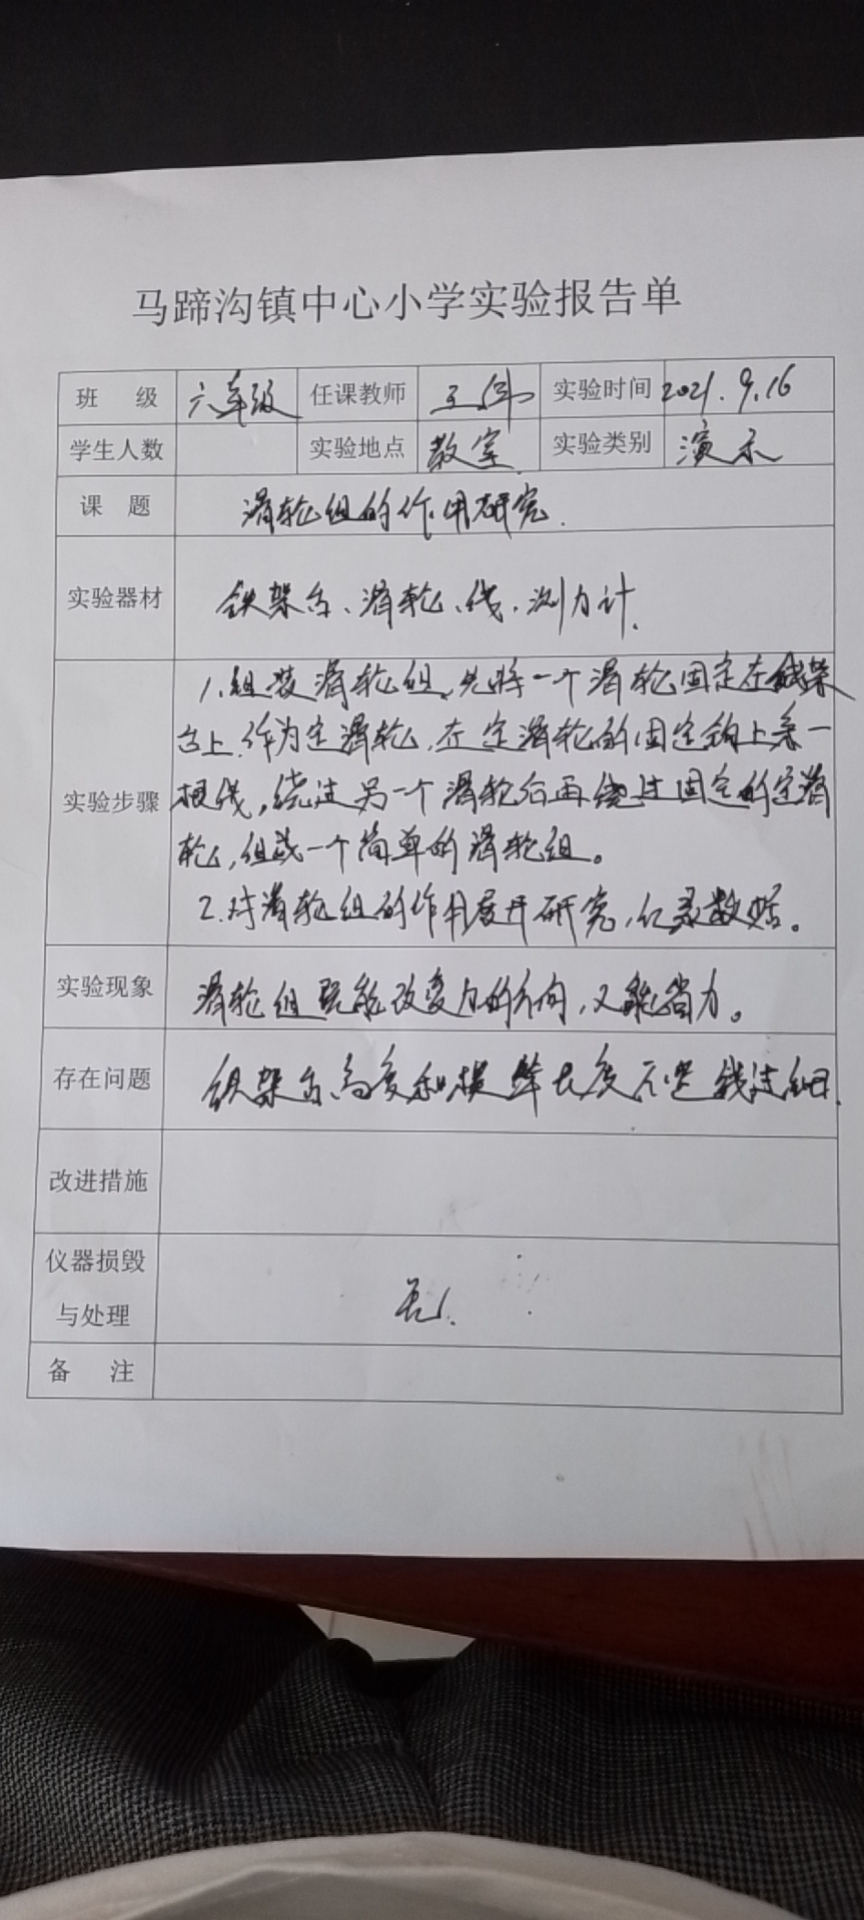 马蹄沟镇中心小学实验报告单
班 级 六年级 任课教师 王伟 实验时间 2021.9.16
学生人数 实验地点 教室 实验类别 演示
课 题 滑轮组的作用研究.
实验器材 铁架台、滑轮、线、测力计.
1.组装滑轮组,先将一个滑轮固定在铁架
台上,作为定滑轮,在定滑轮的固定钩上系一
实验步骤 根线,绕过另一个滑轮后再绕过固定的定滑
轮,组成一个简单的滑轮组。
2.对滑轮组的作用展开研究,记录数据。
实验现象 滑轮组既能改变力的方向,又能省力。
存在问题 铁架台高度和横 长度不足 线过细.
改进措施
仪器损毁
与处理
无.
备 注